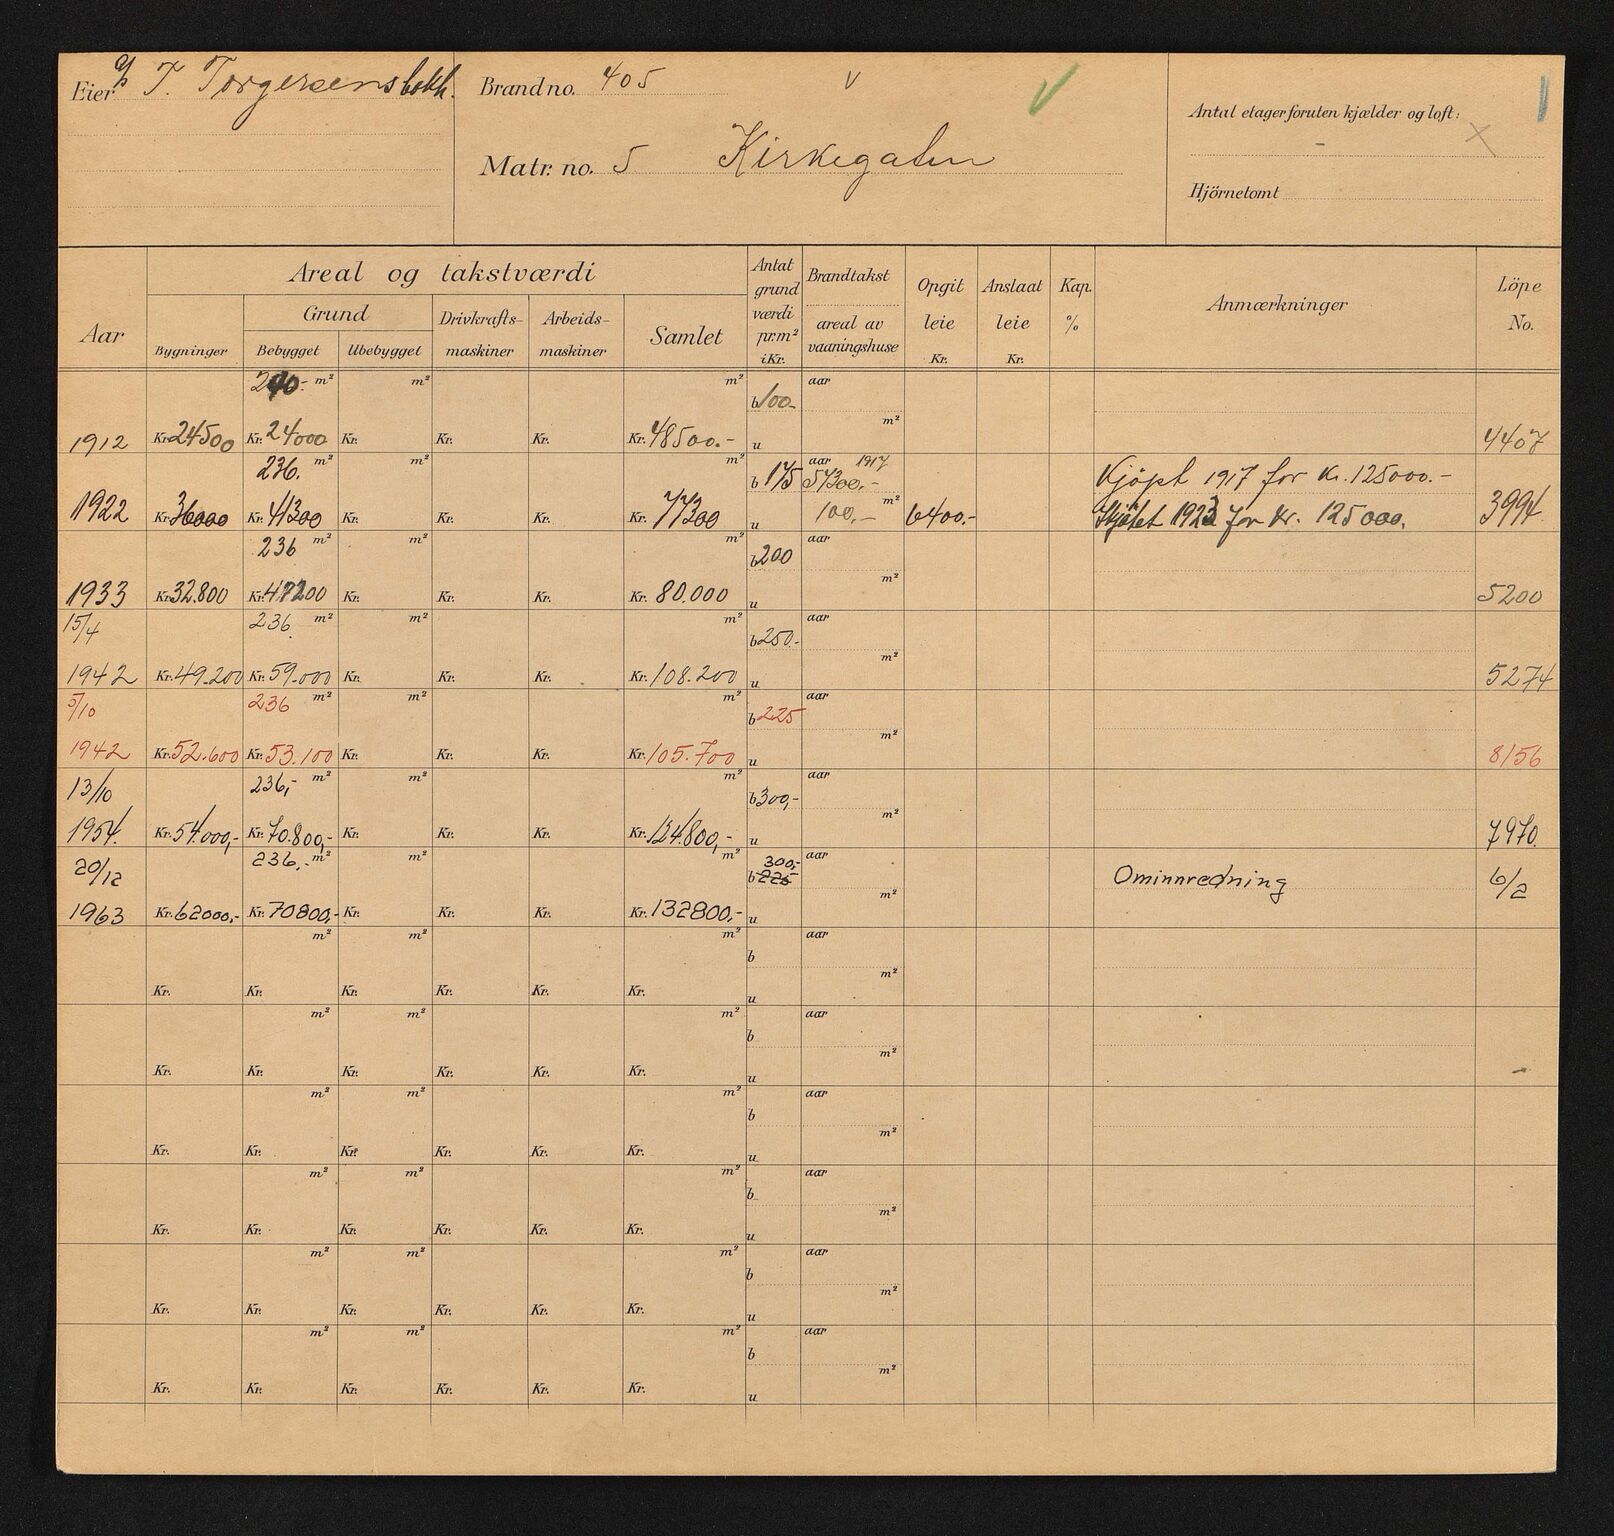 Eier T. Torgersens bokh.
Brand no. 405
Matr. no. 5 Kirkegaten
Antal etager foruten kjælder og loft:
Hjörnetomt
Aar
Areal og takstværdi
Bygninger
Grund
Bebygget Ubebygget
Drivkrafts-maskiner
Arbeids-maskiner
Samlet
Antat grund værdi pr. m² i Kr.
Brandtakst
areal av vaaningshuse
Opgit leie Kr.
Anslaat leie Kr.
Kap. %
Anmærkninger
Löpe No.
240.- m² m² m² b 100.- aar
1912 Kr. 24500 Kr. 24000 Kr. Kr. Kr. Kr. 48500.- u m² 4407
236. m² m² m² b 175 aar 1917 57300.- Kjöpt 1917 for kr. 125000.-
1922 Kr. 36000 Kr. 41300 Kr. Kr. Kr. Kr. 77300 u 100,- m² 6400.- Skjötet 1923 for kr. 125000. 3994
236 m² m² m² b 200 aar
1933 Kr. 32.800 Kr. 47200 Kr. Kr. Kr. Kr. 80.000 u m² 5200
15/4 236. m² m² m² b 250.- aar
1942 Kr. 49.200 Kr. 59.000 Kr. Kr. Kr. Kr. 108.200 u m² 5274
5/10 236 m² m² m² b 225 aar
1942 Kr. 52.600 Kr. 53.100 Kr. Kr. Kr. Kr. 105.700 u m² 8156
13/10 236,- m² m² m² b 300,- aar
1954. Kr. 54.000,- Kr. 70.800,- Kr. Kr. Kr. Kr. 124.800,- u m² 7970.
20/12 236,- m² m² m² 300,- b 225 aar Ominnredning 6/2
1963 Kr. 62000,- Kr. 70800,- Kr. Kr. Kr. Kr. 132800,- u m²
m² m² m² b aar
Kr. Kr. Kr. Kr. Kr. Kr. u m²
m² m² m² b aar
Kr. Kr. Kr. Kr. Kr. Kr. u m²
m² m² m² b aar
Kr. Kr. Kr. Kr. Kr. Kr. u m²
m² m² m² b aar
Kr. Kr. Kr. Kr. Kr. Kr. u m²
m² m² m² b aar
Kr. Kr. Kr. Kr. Kr. Kr. u m²
m² m² m² b aar
Kr. Kr. Kr. Kr. Kr. Kr. u m²